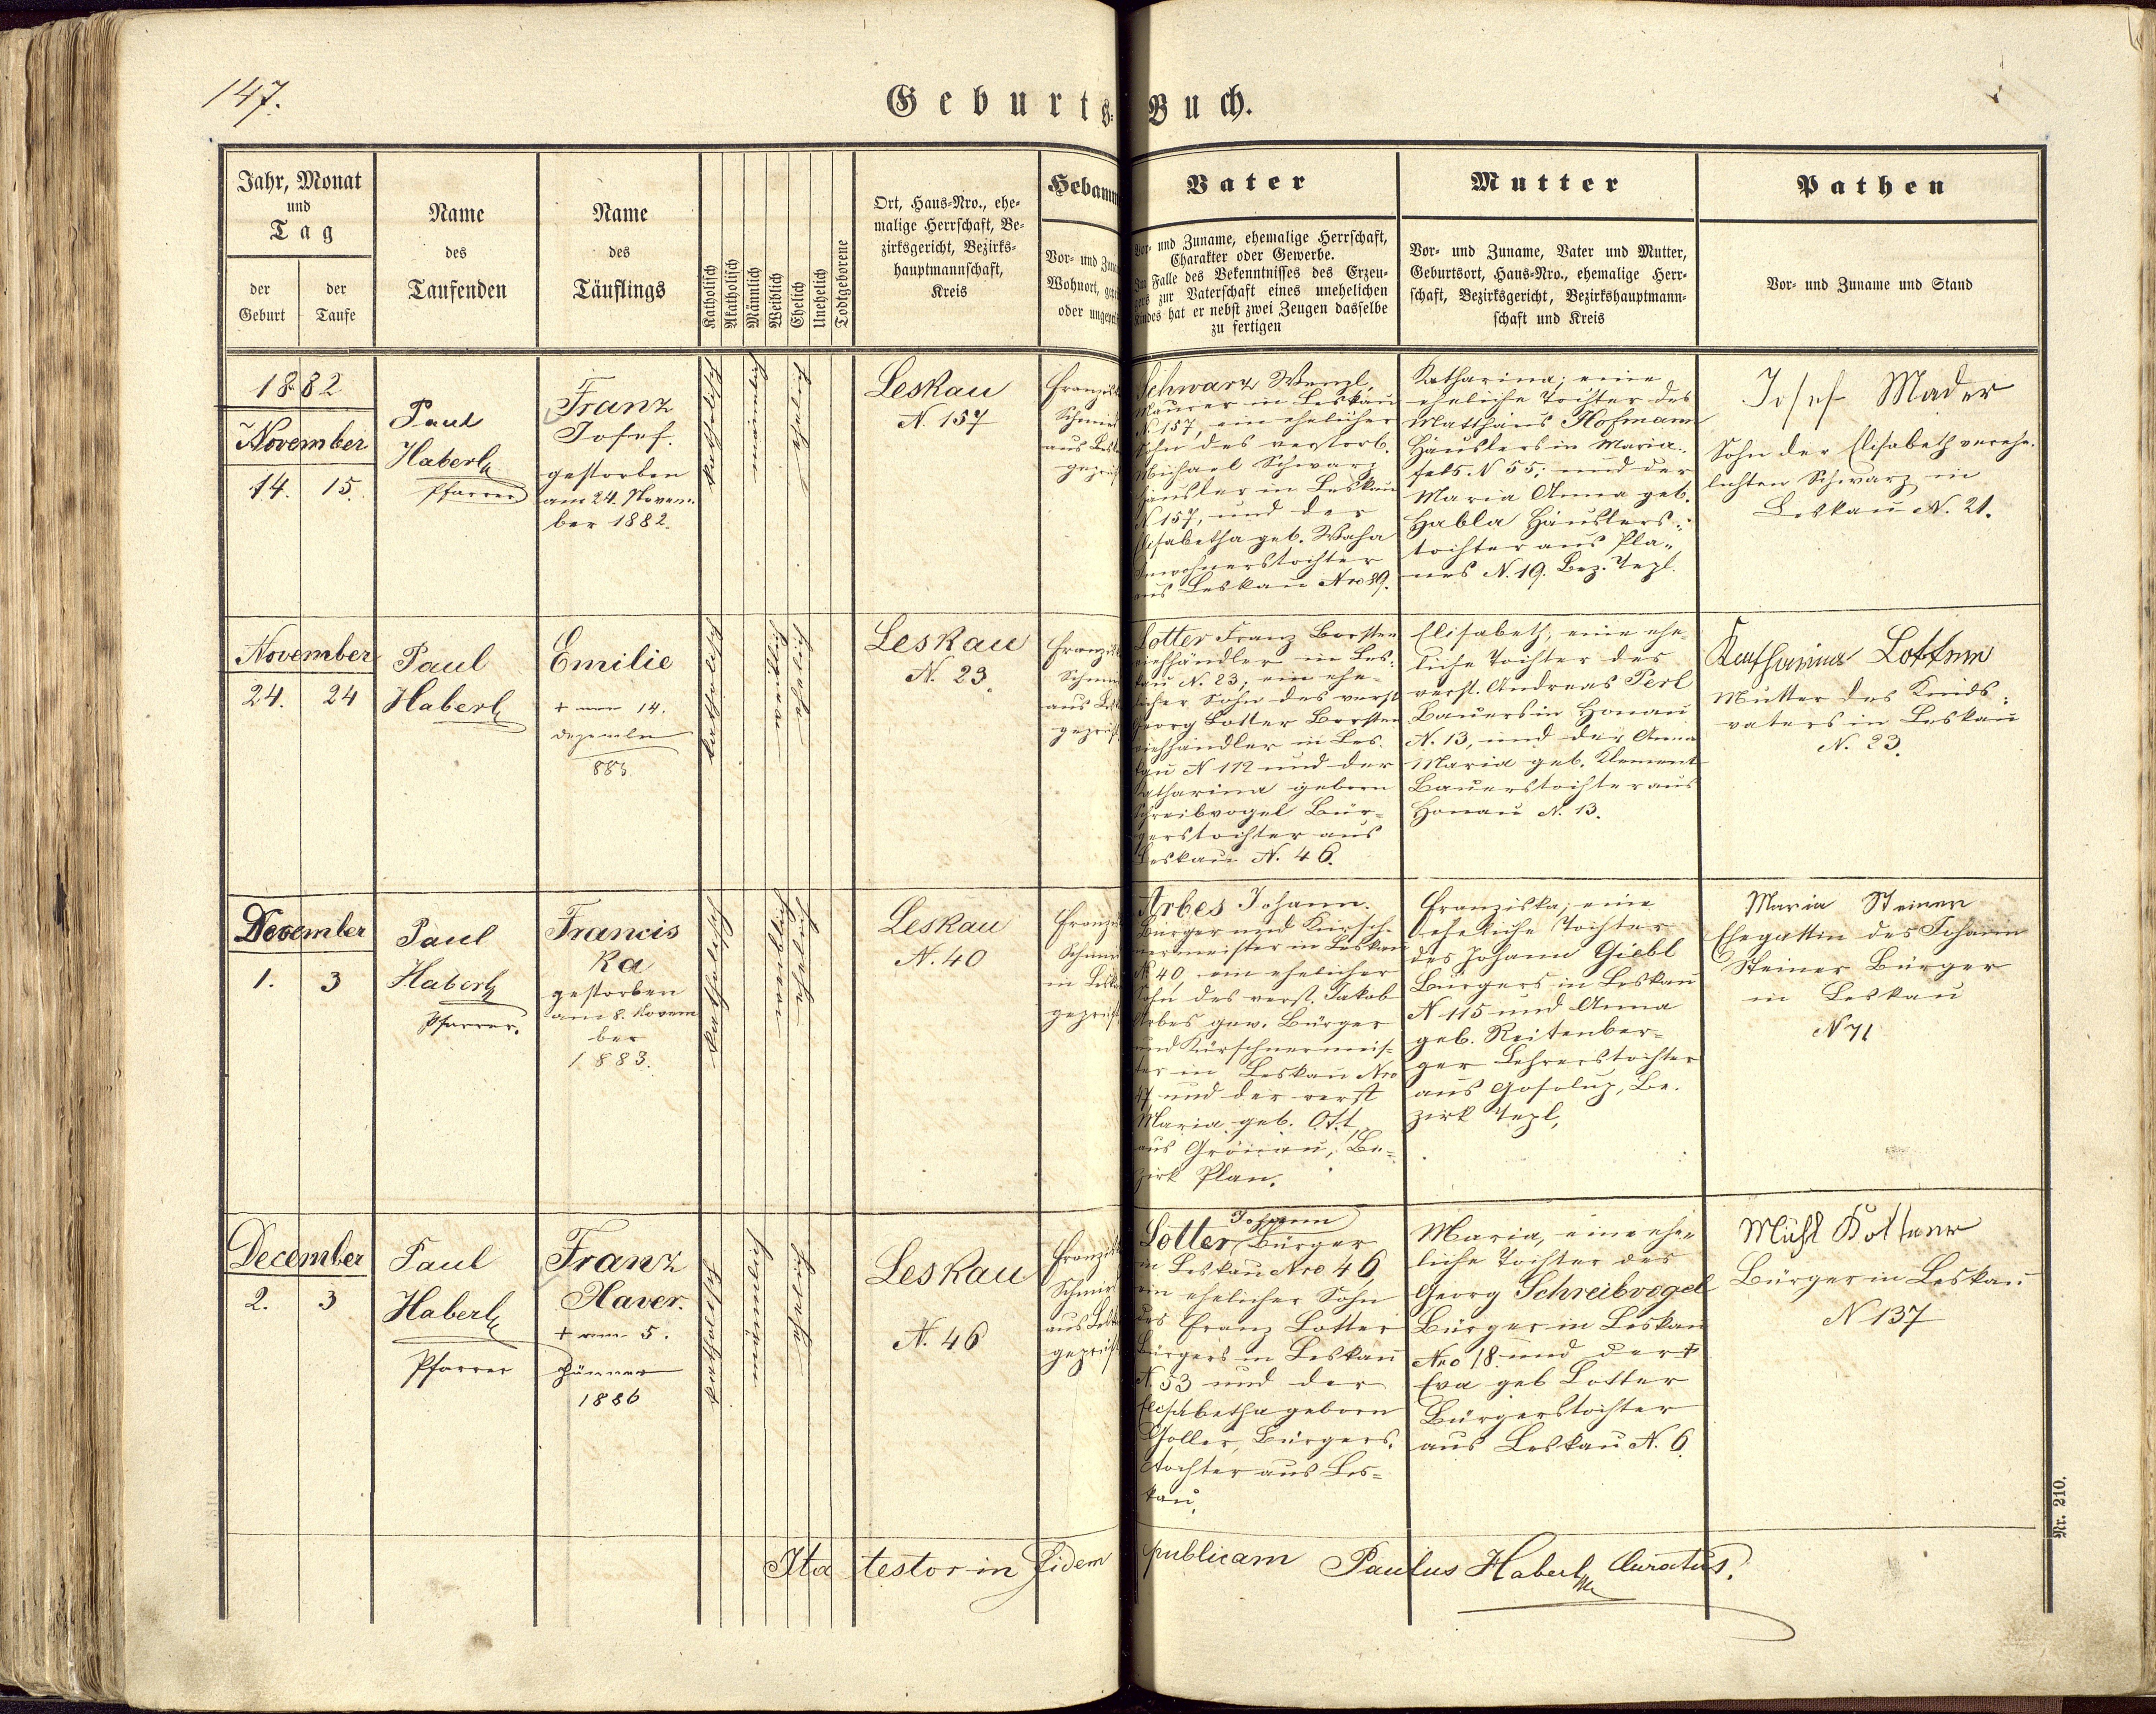 147.
Geburts-Buch.
Jahr, Monat
und
Tag
der
Geburt
der
Taufe
Name
des
Taufenden
Name
des
Täuflings
Katholisch
Akatholisch
Männlich
Weiblich
Ehelich
Unehelich
Todtgeborene
Ort, Haus-Nro., ehe-
malige Herrschaft, Be-
zirksgericht, Bezirks-
hauptmannschaft,
Kreis
Hebamm
Vor- und Zuna
Wohnort, gepr
oder ungeprüf
Vater
Vor- und Zuname, ehemalige Herrschaft,
Charakter oder Gewerbe.
Im Falle des Bekenntnisses des Erzeu-
gers zur Vaterschaft eines unehelichen
Kindes hat er nebst zwei Zeugen dasselbe
zu fertigen
Mutter
Vor- und Zuname, Vater und Mutter,
Geburtsort, Haus-Nro., ehemalige Herr-
schaft, Bezirksgericht, Bezirkshauptmann-
schaft und Kreis
Pathen
Vor- und Zuname und Stand
1882
November
14. 15.
Paul
Haberl
Pfarrer
Franz
Josef.
gestorben
am 24. Novem-
ber 1882.
katholisch
männlich
ehelich
Leskau
N. 157
Franzisk
Schmid
aus Lesk
geprüft
Schwarz Wenzl,
Maurer in Leskau
N 157, ein ehelicher
Sohn des verstorb.
Michael Schwarz
Häusler in Leskau
N 157, und der
Elisabetha geb. Waha
Inwohnerstochter
aus Leskau Nro 89.
Katharina; eine
eheliche Tochter des
Matthäus Hofmann
Häuslers in Maria-
fels. N 55; und der
Maria Anna geb.
Habla Häuslers-
tochter aus Pla-
nes N. 19. Bez. Tepl.
Josef Mader
Sohn der Elisabeth verehe-
lichten Schwarz in
Leskau N. 21.
November
24. 24
Paul
Haberl
Emilie
+ am 14.
Dezember
883.
katholisch
weiblich
ehelich
Leskau
N. 23.
Franzisk
Schmid
aus Lesk
geprüft
Lotter Franz Borsten
viehhändler in Les-
kau N. 23; ein ehe-
licher Sohn des verst
Georg Lotter Borsten
viehhändler in Les-
kau N 112 und der
Katharina geborn
Schreibvogel Bür-
gerstochter aus
Leskau N. 46.
Elisabeth, eine ehe-
liche Tochter des
verst. Andreas Perl
Bauers in Honau
N. 13, und der Anna
Maria geb. Klement
Bauerstochter aus
Honau N. 13.
Katharina Lotter
Mutter des Kinds-
vaters in Leskau
N. 23.
December
1. 3
Paul
Haberl
Pfarrer.
Francis
ka
gestorben
am 8. Novem
ber
1883.
katholisch
weiblich
ehelich
Leskau
N. 40
Franzisk
Schmid
in Lesk
geprüft
Arbes Johann.
Bürger und Kürsch-
nermeister in Leskau
N 40, ein ehelicher
Sohn des verst. Jakob
Arbes gew. Bürger
und Kürschnermeis-
ter in Leskau Nro
47 und der verst
Maria geb. Ott
aus Grönau, Be-
zirk Plan.
Franziska; eine
eheliche Tochter
des Johann Giebl
Bürgers in Leskau
N 115 und Anna
geb. Reitenber-
ger Lehrerstochter
aus Gosolup, Be-
zirk Tepl,
Maria Steiner
Ehegattin des Johann
Steiner Bürger
in Leskau
N 71
December
2. 3
Paul
Haberl
Pfarrer
Franz
Xaver.
+ am 5.
Jänner
1886
katholisch
männlich
ehelich
Leskau
N. 46
Franzisk
Schmid
aus Lesk
geprüft
Johann
Lotter Bürger
in Leskau Nro 46,
ein ehelicher Sohn
des Franz Lotter
Bürgers in Leskau
N. 53 und der
Elisabetha geborn
Zholler, Bürgers-
tochter aus Les-
kau.
Maria, eine ehe-
liche Tochter des
Georg Schreibvogel
Bürger in Leskau
Nro 18. und der +
Eva geb Lotter
Bürgerstochter
aus Leskau N. 6.
Michl
Bürger in Leskau
N 137
Ita testor in fidem publicam Paulus Haberl Curatus.
Nr. 210.